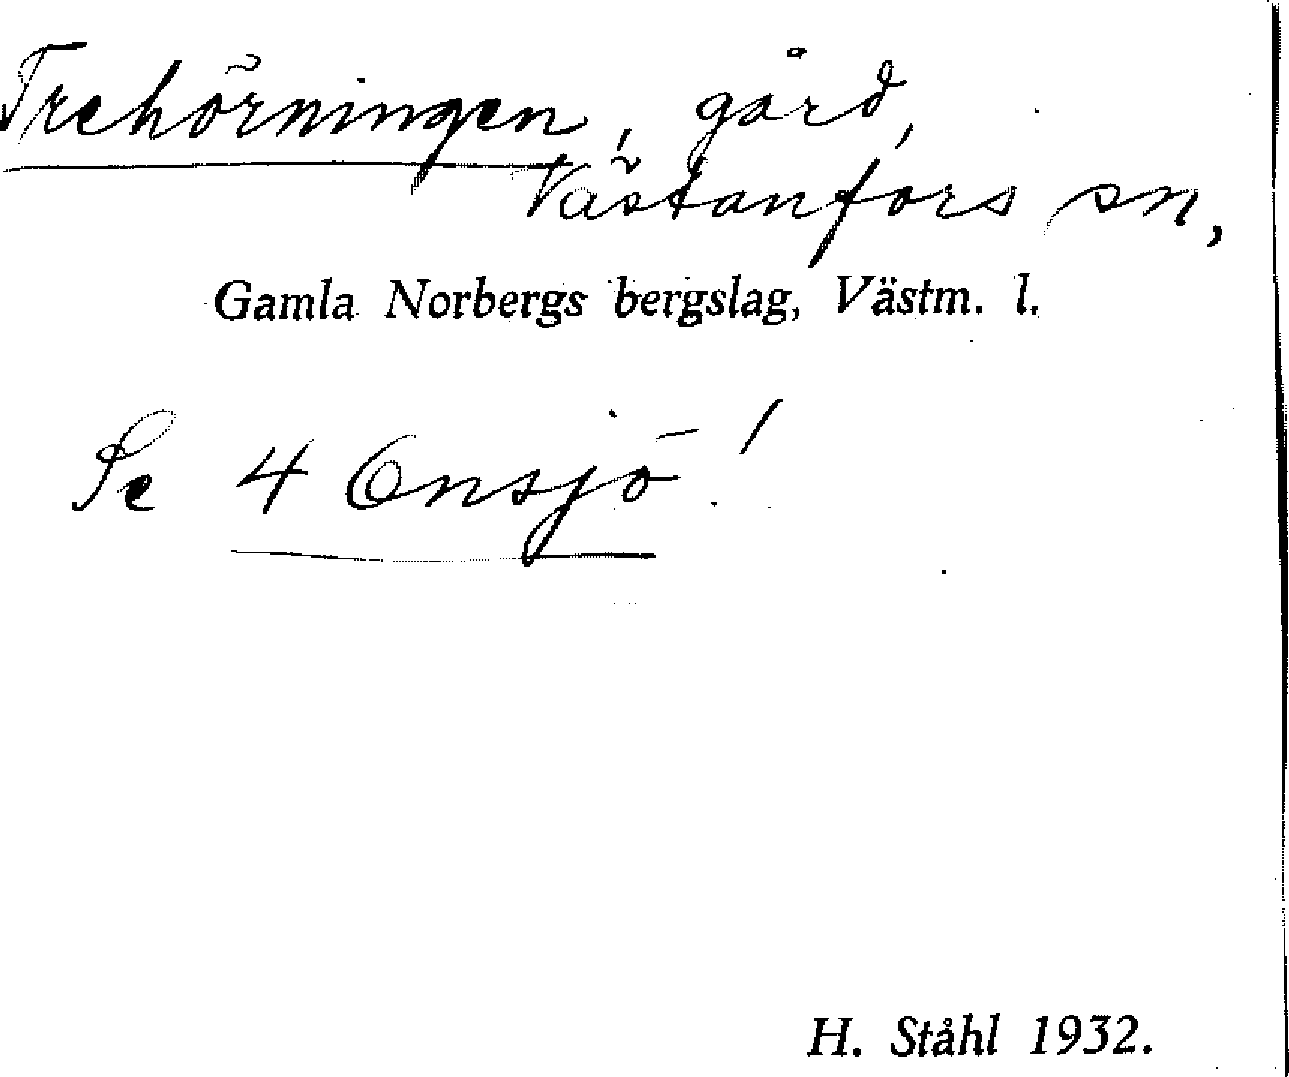 Trehörningen, gård,
Västanfors sn,
Gamla Norbergs bergslag, Västm. l.
Se 4 Onsjö!
H. Ståhl 1932.